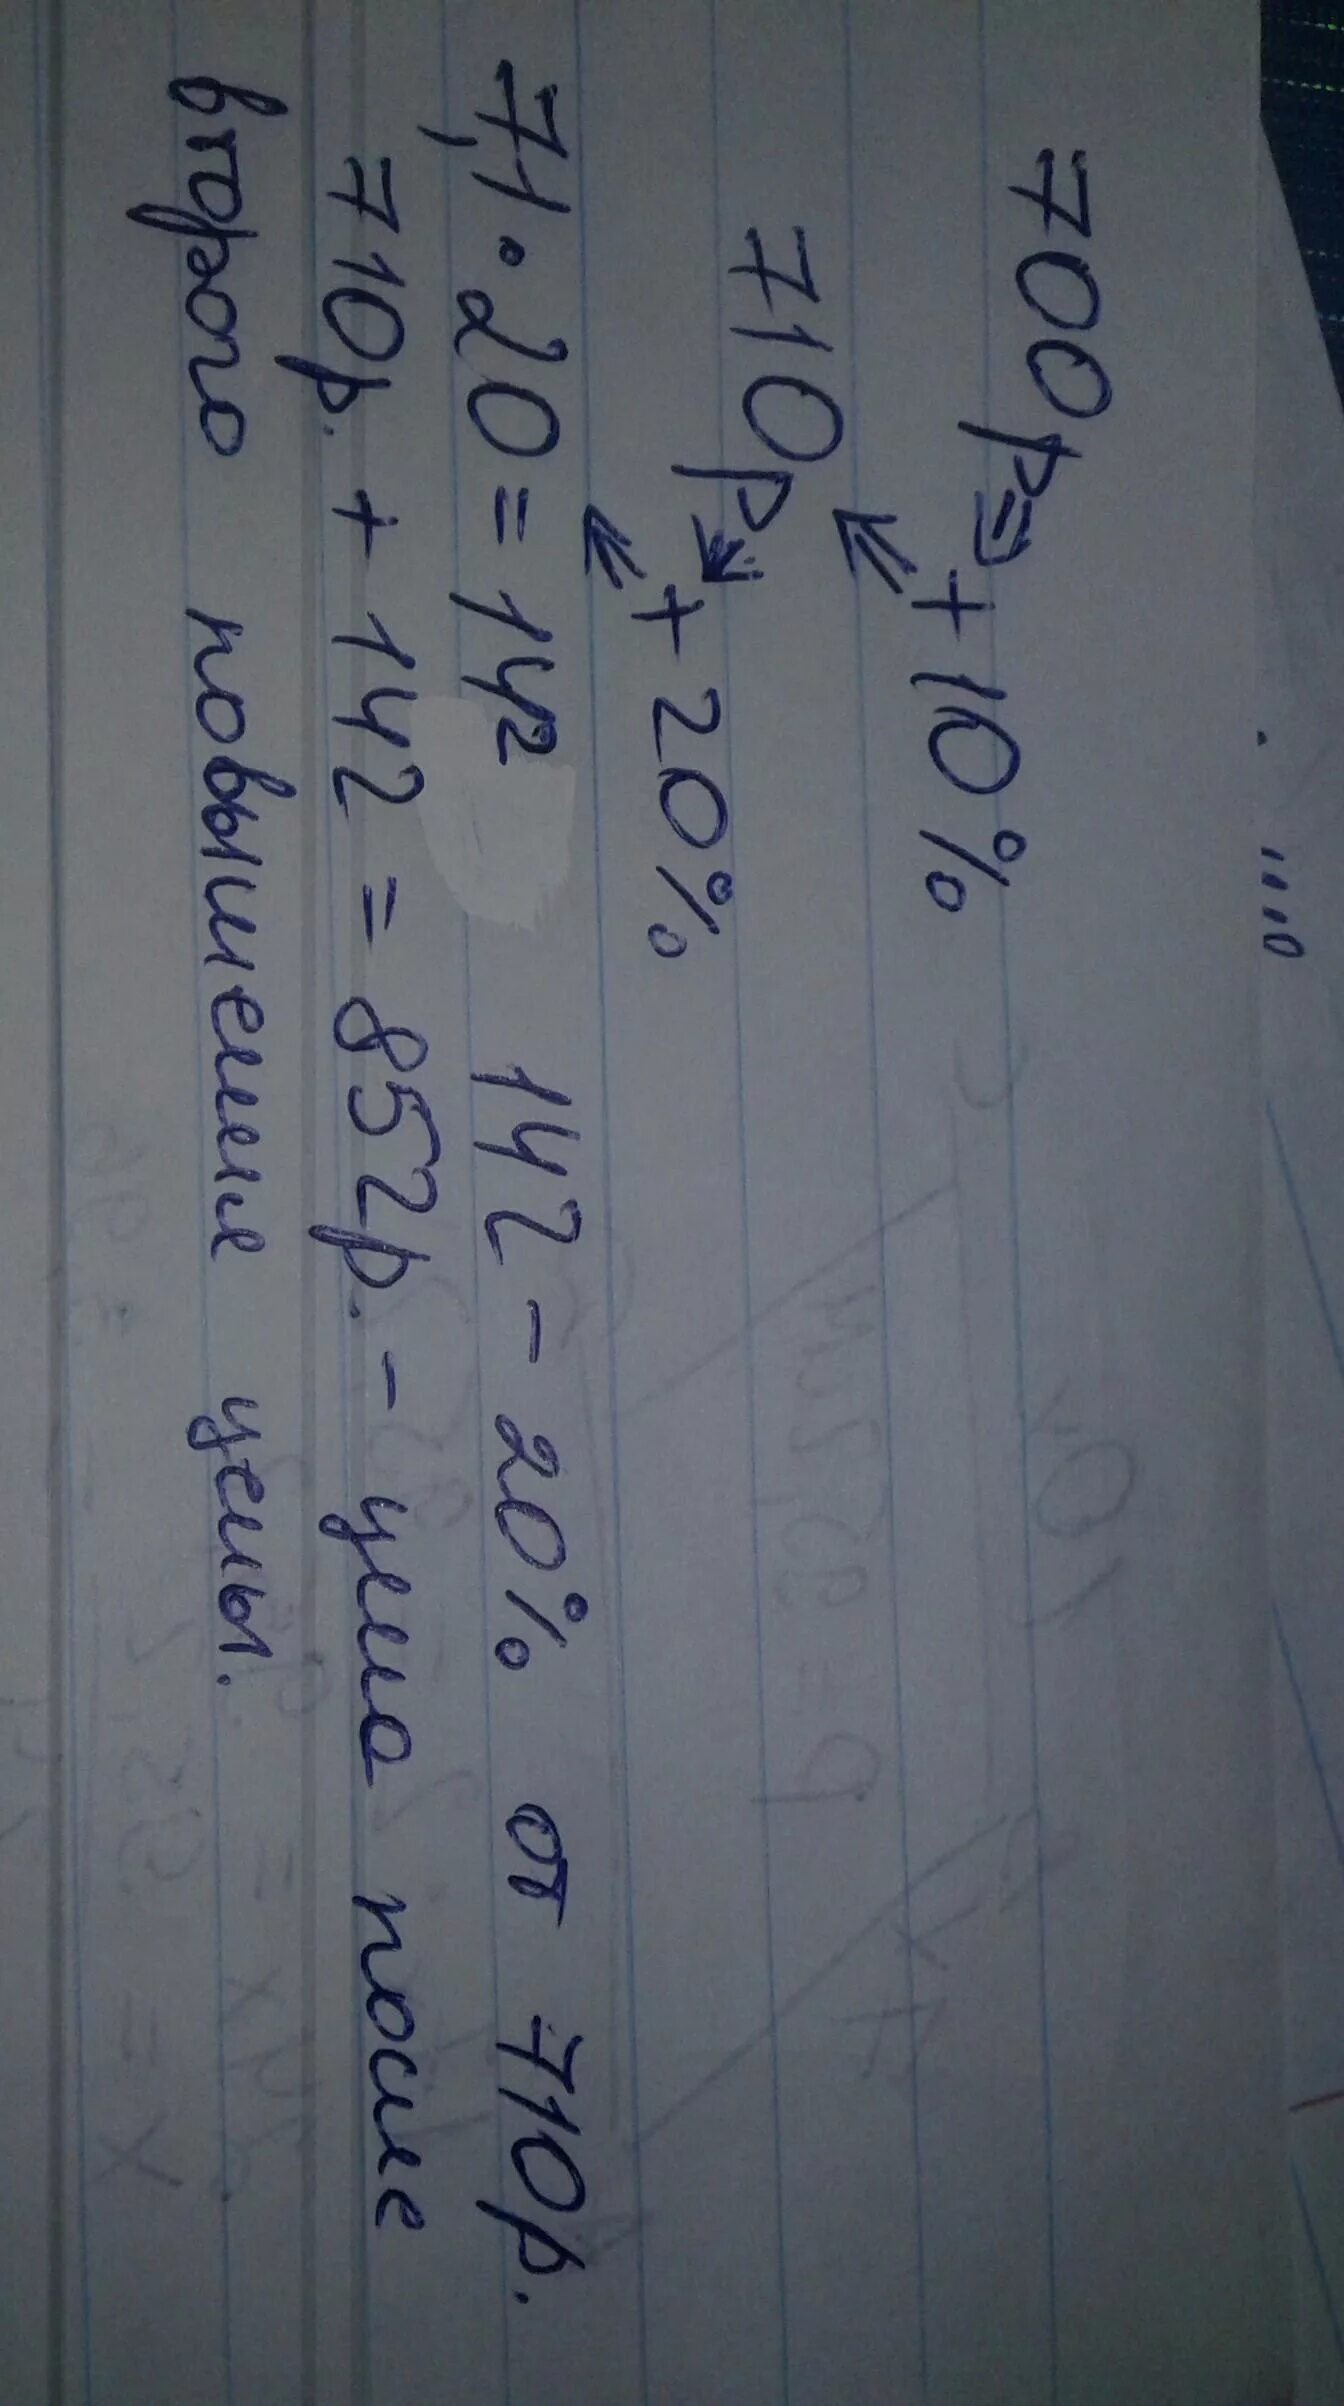 700р ⇒ + 10%
710р → + 20%
7,1 · 20 = 142 142 - 20% от 710р.
710р. + 142 = 852р. - цена после
второго повышения цены.